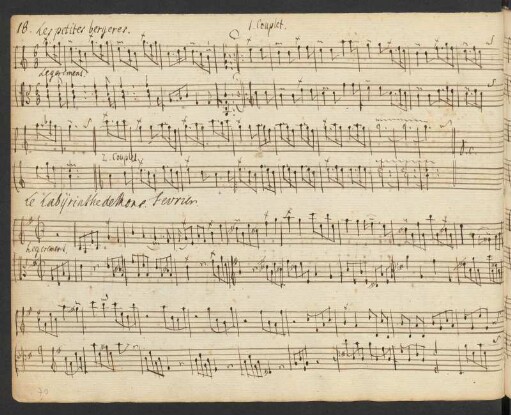 18. Les petites bergeres. 1. Couplet.
Legerement.
D.C.
2. Couplet.
Le Labÿrinthe de Mons. Fevrier.
Legerement.